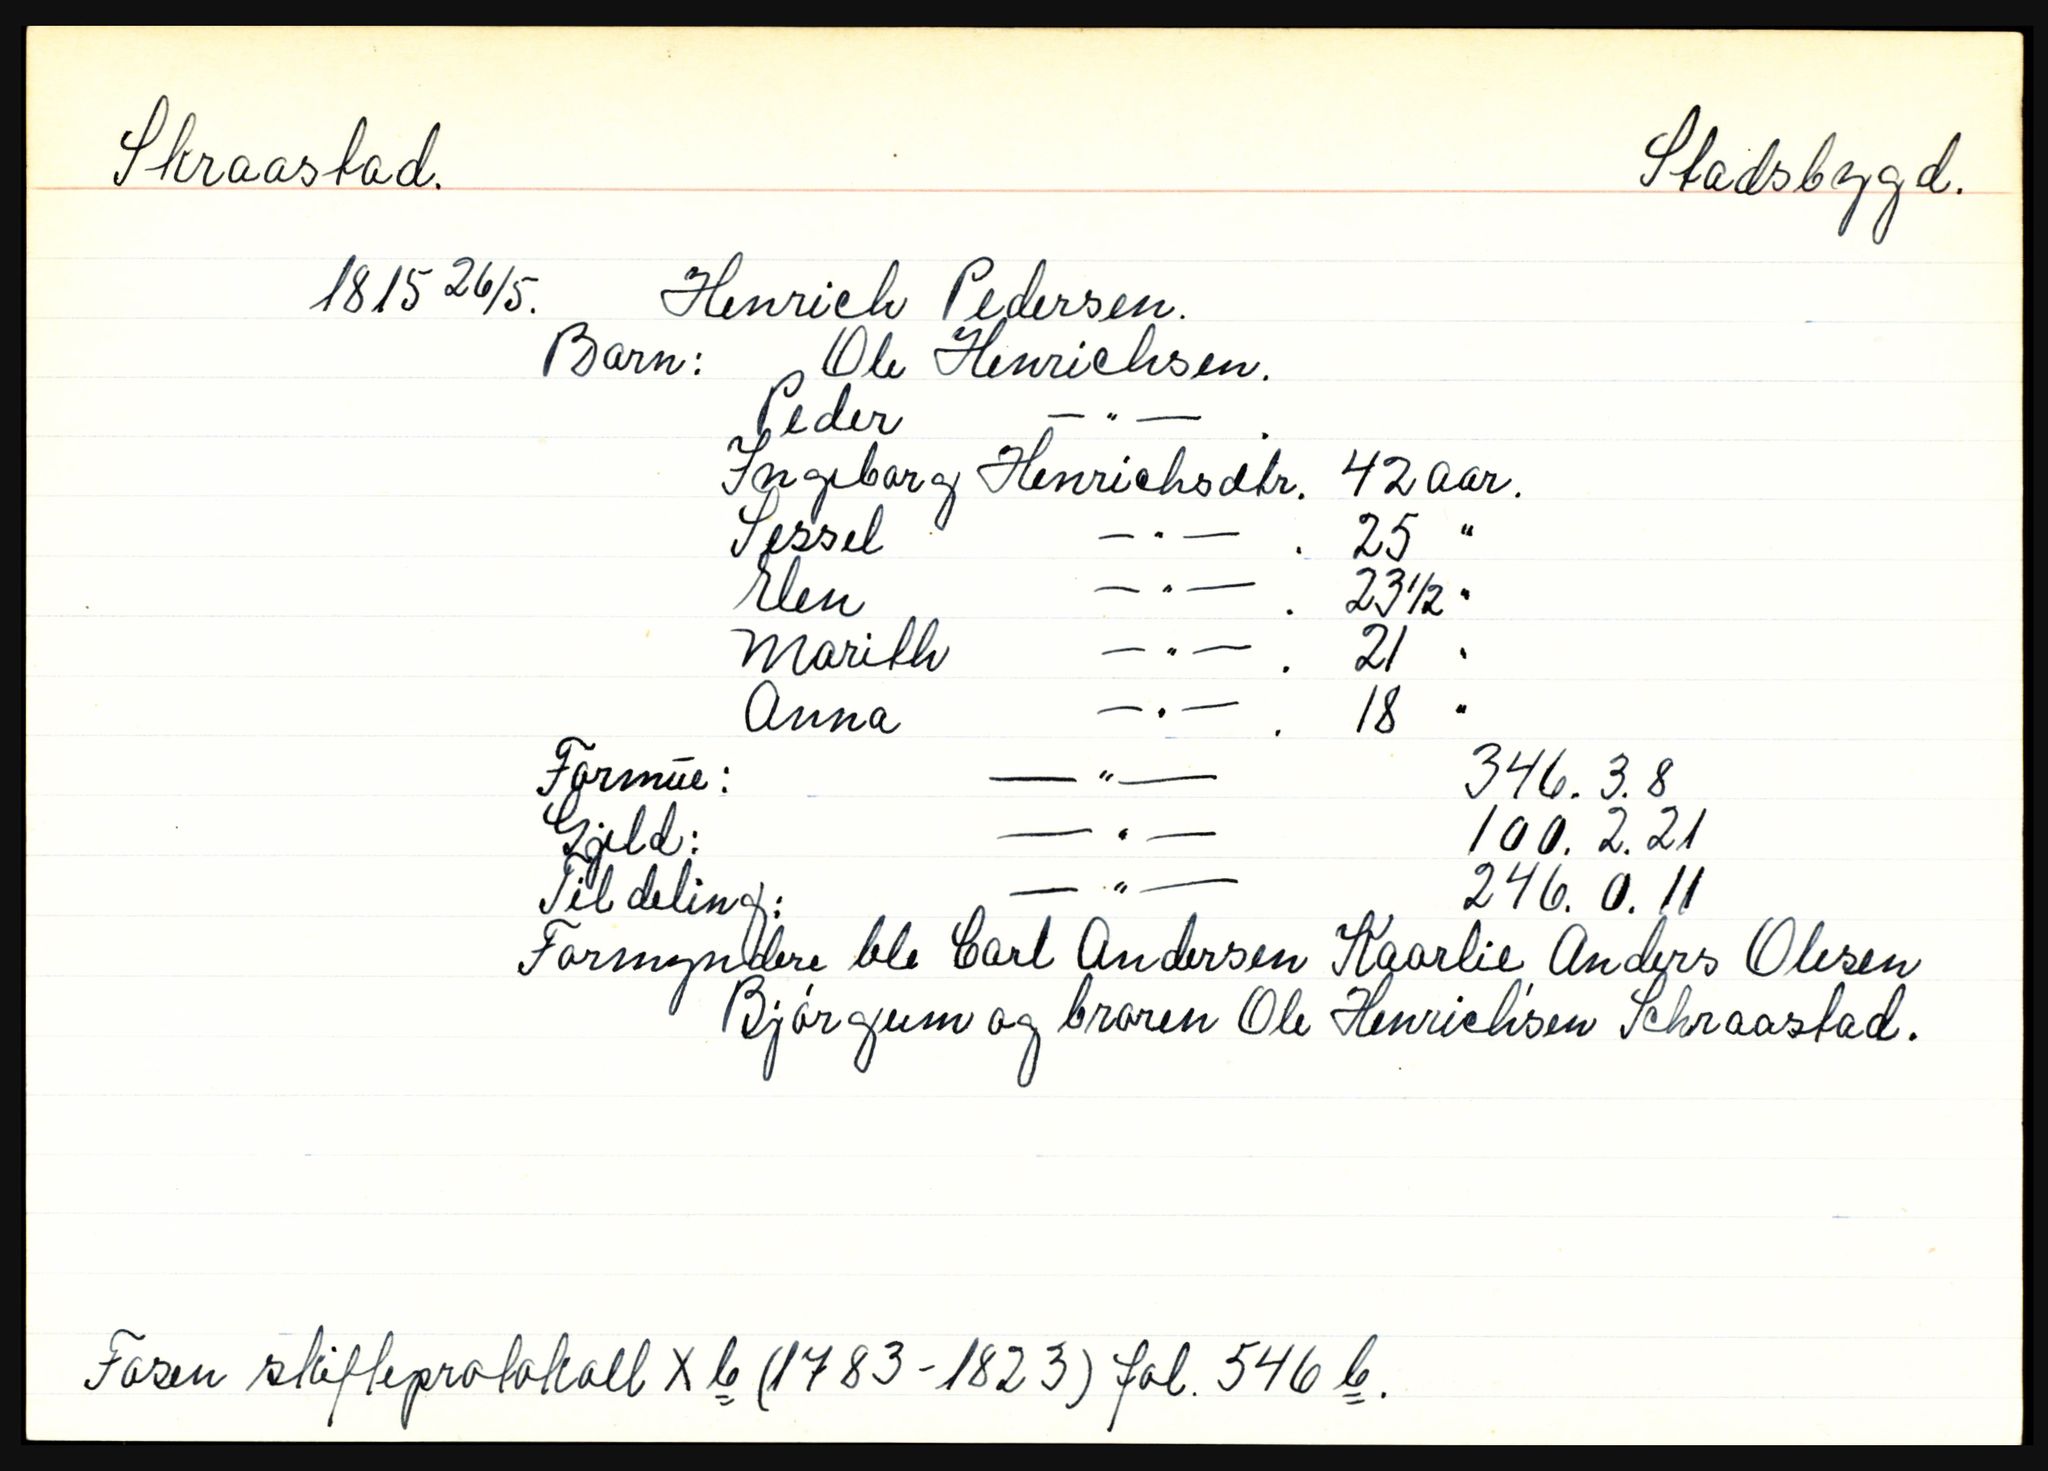 Skraastad. Stadsbygd.
1815 26/5. Henrich Pedersen.
Barn: Ole Henrichsen.
Peder — " — .
Ingeborg Henrichsdtr. 42 aar.
Sessel — " — . 25 "
Elen — " — . 23 1/2 "
Marith — " — . 21 "
Anna — " — . 18 "
Formūe: — " — 346. 3. 8
Gjeld: — " — 100. 2. 21
Til deling: — " — 246. 0. 11
Formyndere ble Carl Andersen Kaarlie Anders Olesen
Bjórgum og broren Ole Henrichsen Schraastad.
Fosen skifteprotokoll X b (1783-1823) fol. 546 b.